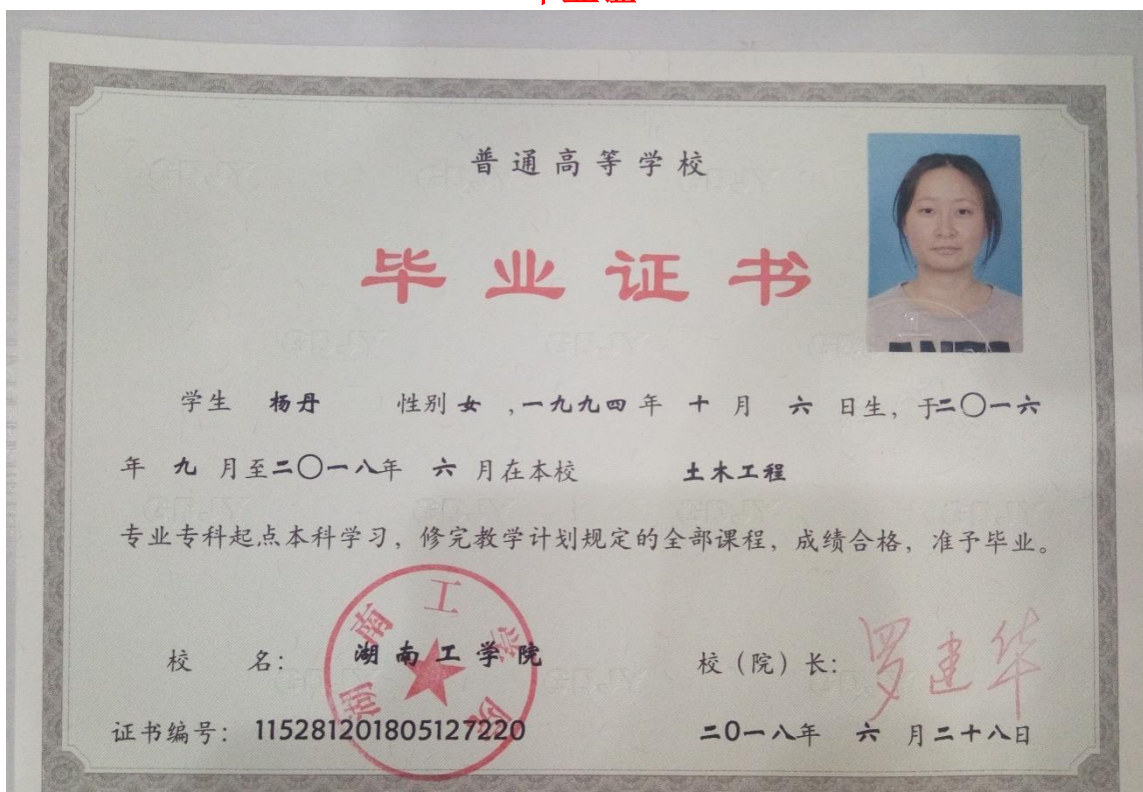 普通高等学校
毕业证书
学生 杨丹 性别 女 ，一九九四 年 十 月 六 日生，于二〇一六
年 九 月至二〇一八年 六 月在本校 土木工程
专业专科起点本科学习，修完教学计划规定的全部课程，成绩合格，准予毕业。
湖南工学院
校 名： 湖南工学院 校（院）长： 罗建华
证书编号： 115281201805127220 二0一八年 六 月二十八日